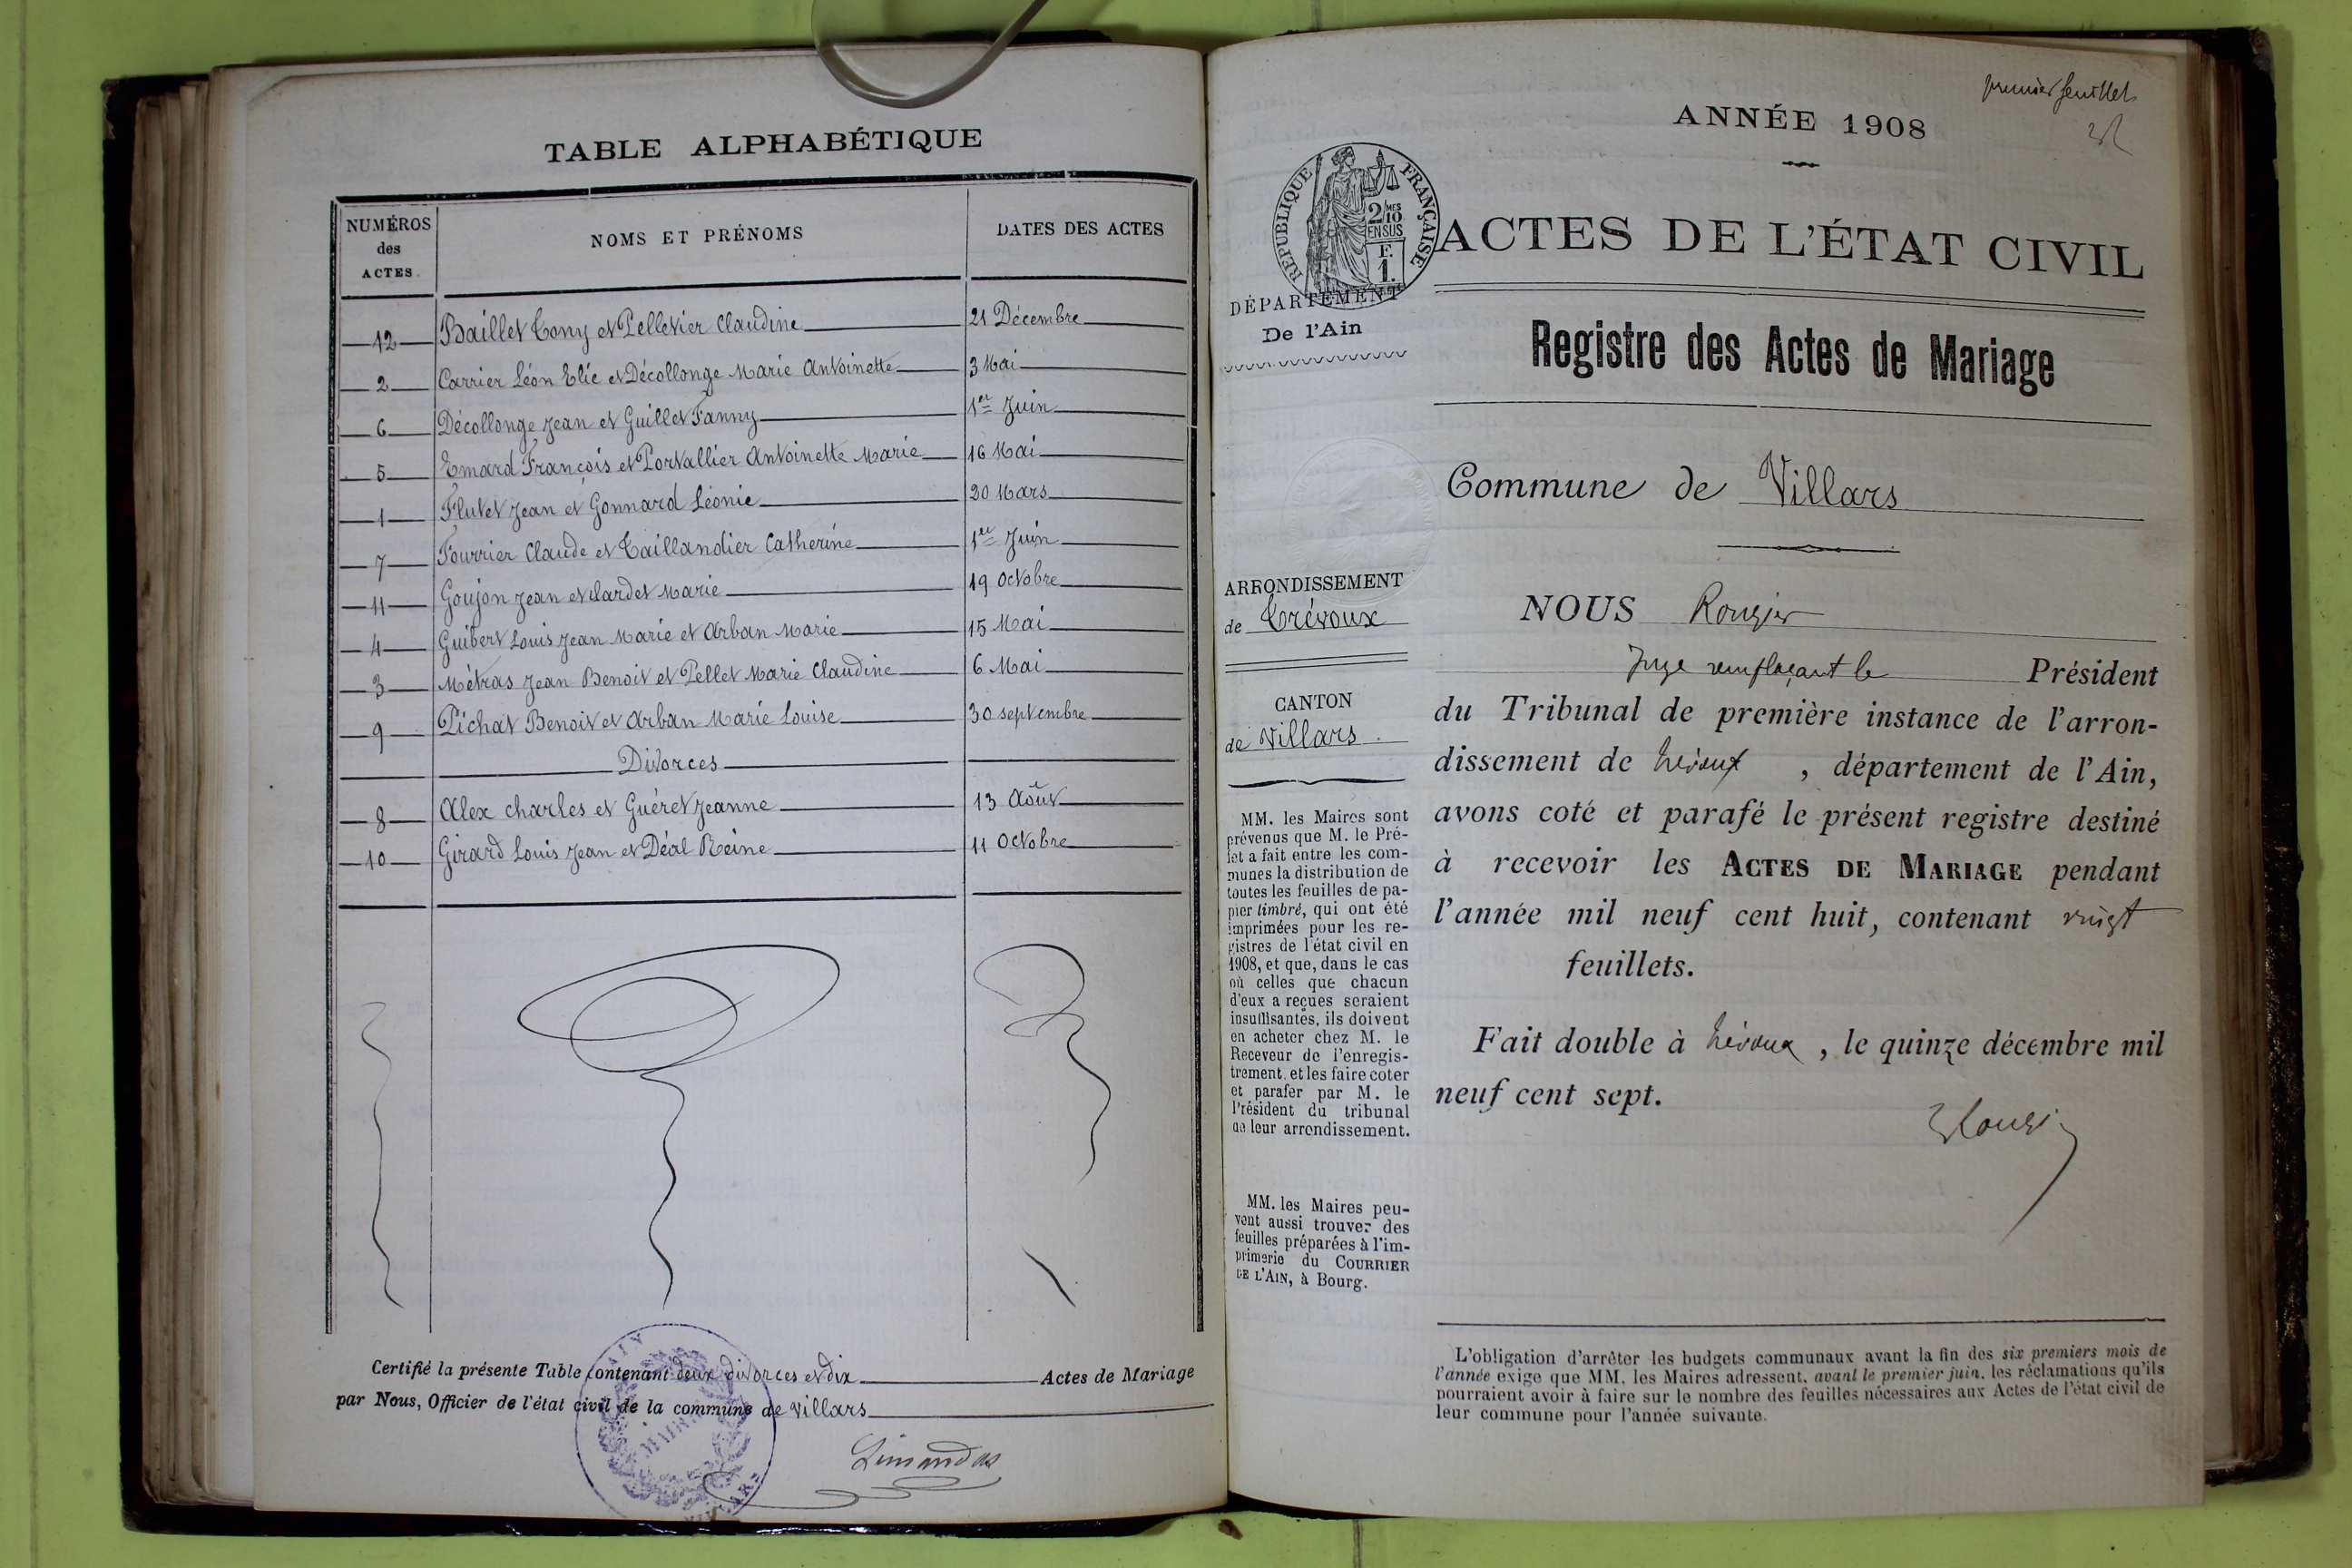 TABLE ALPHABÉTIQUE
NUMÉROS des ACTES
NOMS ET PRÉNOMS
DATES DES ACTES
12 Baillet Tony et Pelletier Claudine 21 Décembre
2 Carrier Léon Elie et Décollonge Marie Antoinette 3 Mai
6 Décollonge Jean et Guillet Fanny 1er Juin
5 Emard François et Portallier Antoinette Marie 16 Mai
1 Flutet Jean et Gonnard Léonie 20 Mars
7 Fourrier Claude et Taillandier Catherine 1er Juin
11 Goujon Jean et Jardet Marie 19 Octobre
4 Guibert Louis Jean Marie et Arban Marie 15 Mai
3 Métras Jean Benoit et Pellet Marie Claudine 6 Mai
9 Pichat Benoit et Arban Marie Louise 30 septembre
Divorces
8 Alex Charles et Guéret Jeanne 13 Août
10 Girard Louis Jean et Déal Reine 11 Octobre
Certifié la présente Table contenant deux divorces et dix Actes de Mariage
par Nous, Officier de l'état civil de la commune de Villars
Limandas
AIN
MAIRIE
premier feuillet
ANNÉE 1908
RÉPUBLIQUE FRANÇAISE
2/10MES
EN SUS
F.
1.
ACTES DE L'ÉTAT CIVIL
DÉPARTEMENT
De l'Ain
Registre des Actes de Mariage
Commune de Villars
ARRONDISSEMENT
de Trévoux
CANTON
de Villars
MM. les Maires sont
prévenus que M. le Pré-
fet a fait entre les com-
munes la distribution de
toutes les feuilles de pa-
pier timbré, qui ont été
imprimées pour les re-
gistres de l'état civil en
1908, et que, dans le cas
où celles que chacun
d'eux a reçues seraient
insuffisantes, ils doivent
en acheter chez M. le
Receveur de l'enregis-
trement, et les faire coter
et parafer par M. le
Président du tribunal
de leur arrondissement.
MM. les Maires peu-
vent aussi trouver des
feuilles préparées à l'im-
primerie du COURRIER
DE L'AIN, à Bourg.
NOUS Rougier
Juge remplaçant le Président
du Tribunal de première instance de l'arron-
dissement de Trévoux , département de l'Ain,
avons coté et parafé le présent registre destiné
à recevoir les ACTES DE MARIAGE pendant
l'année mil neuf cent huit, contenant vingt
feuillets.
Fait double à Trévoux , le quinze décembre mil
neuf cent sept.
L'obligation d'arrêter les budgets communaux avant la fin des six premiers mois de
l'année exige que MM. les Maires adressent, avant le premier juin, les réclamations qu'ils
pourraient avoir à faire sur le nombre des feuilles nécessaires aux Actes de l'état civil de
leur commune pour l'année suivante.